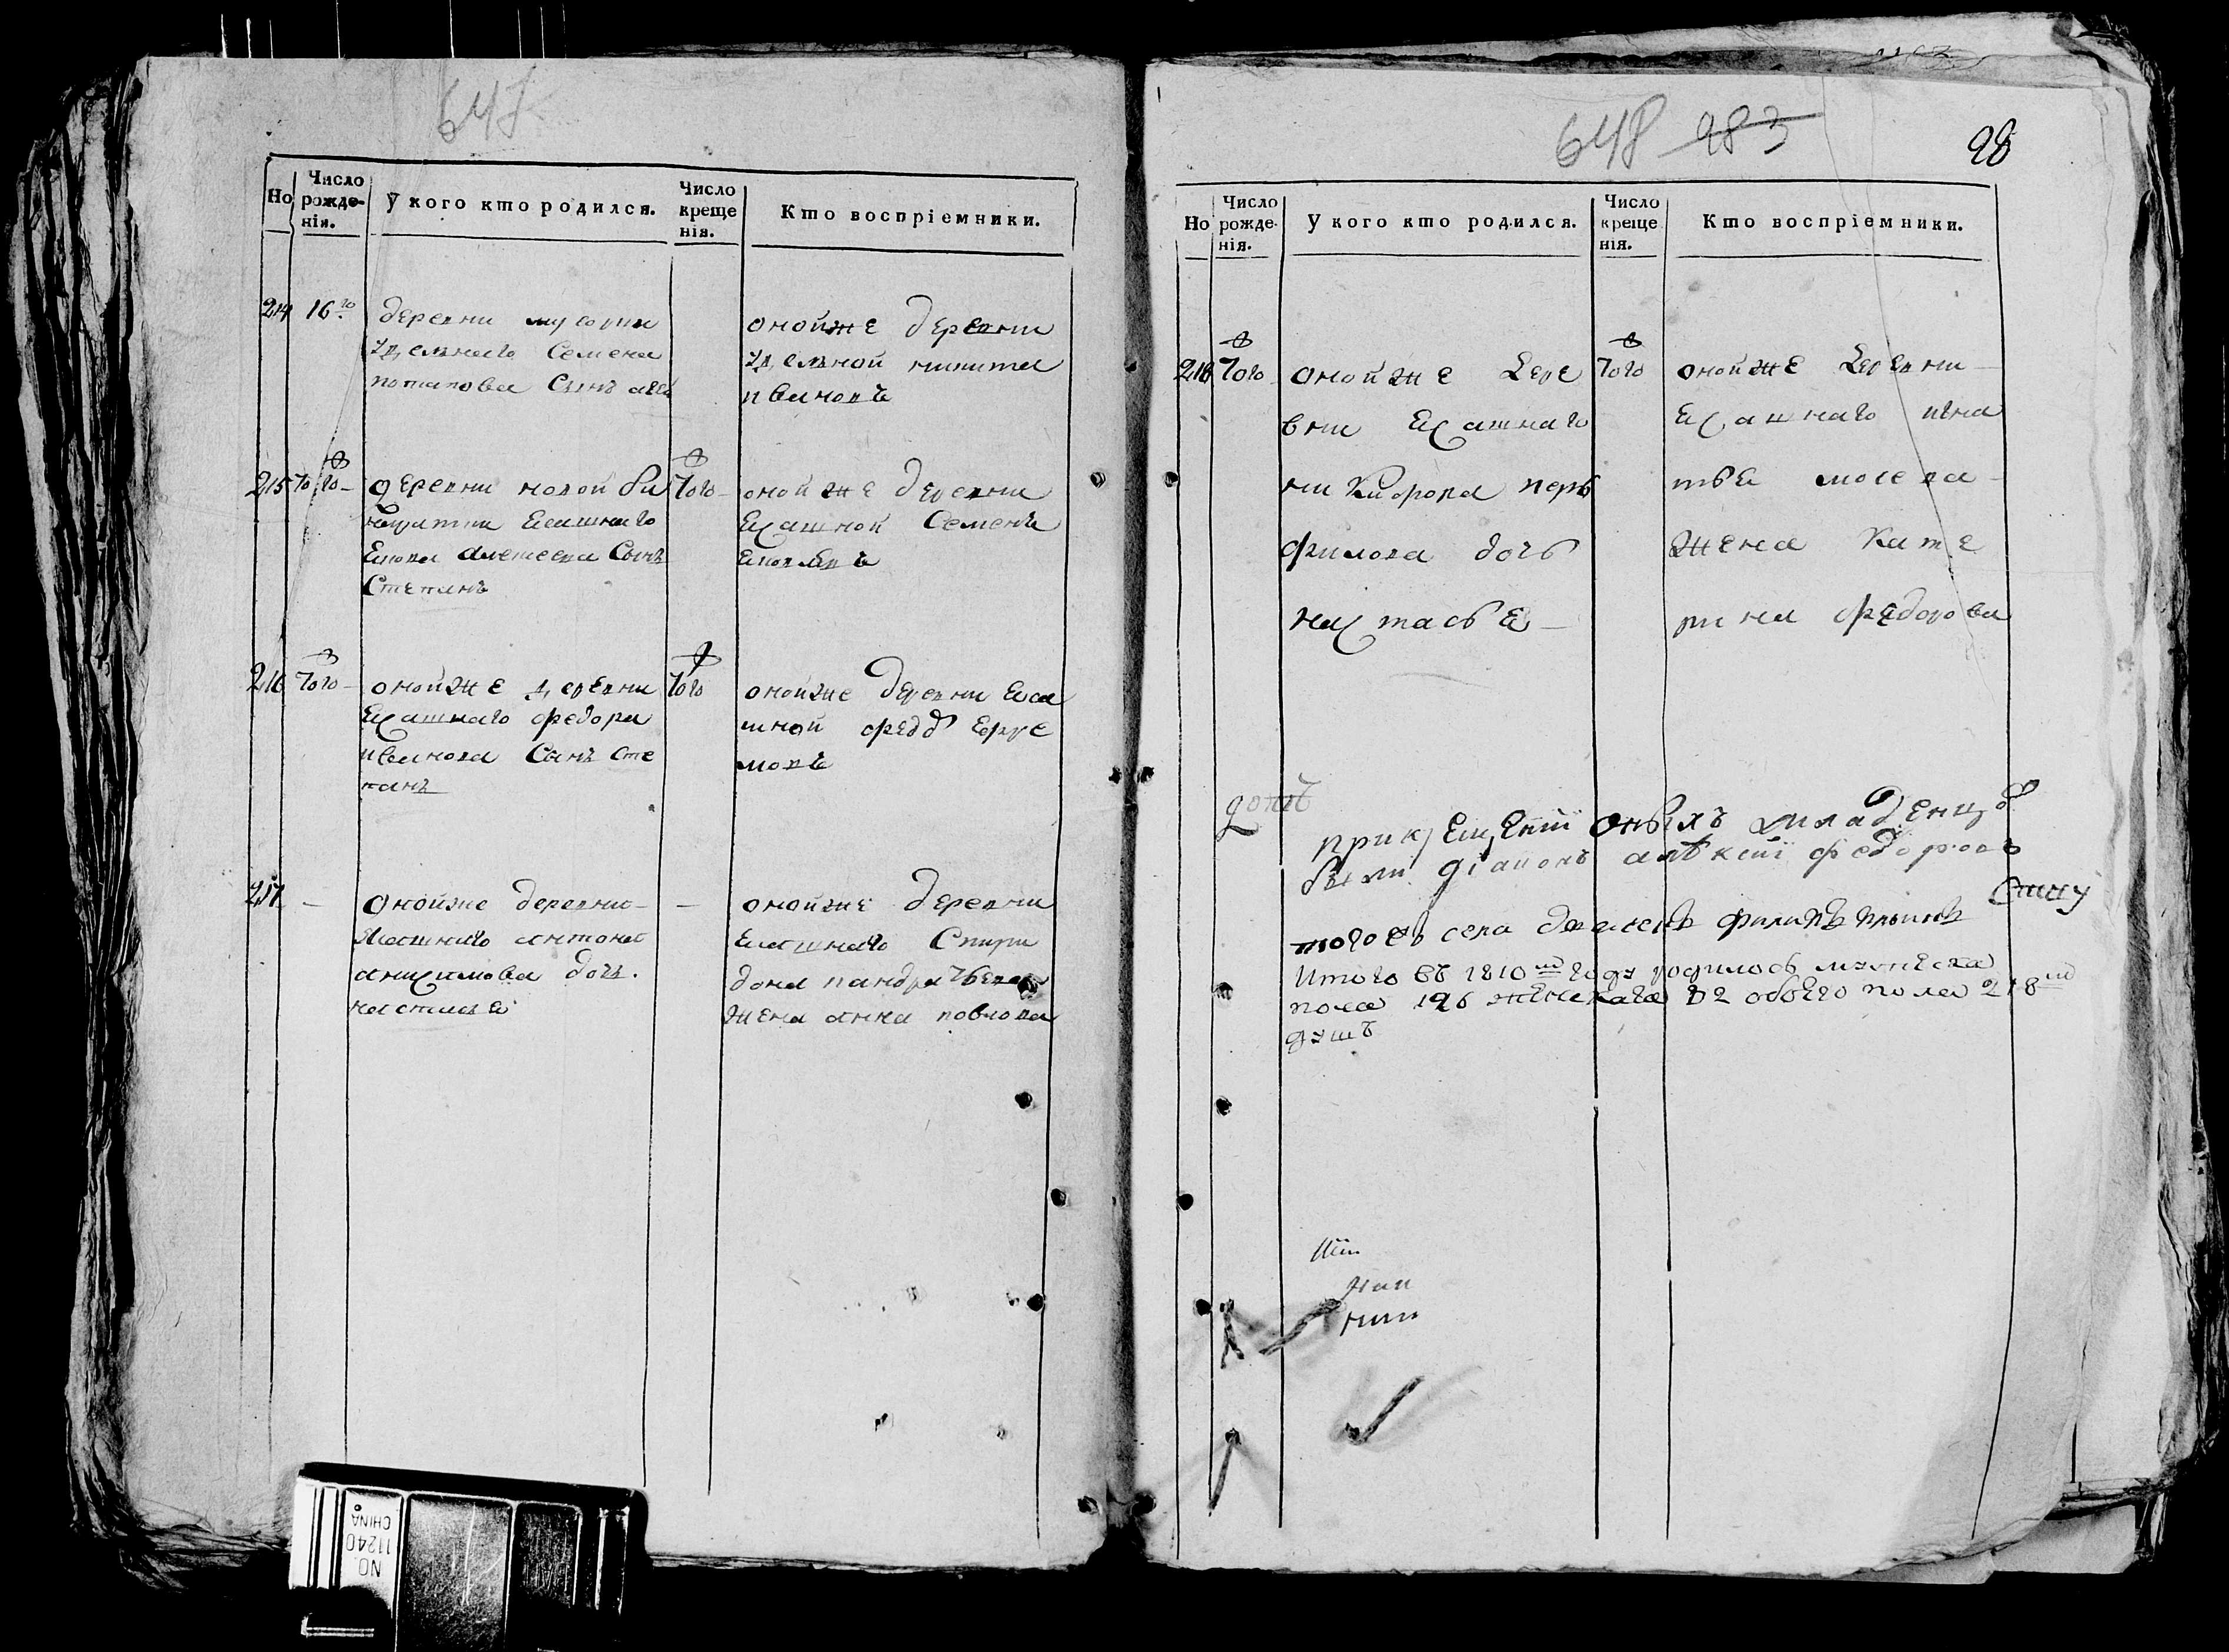 647
Но
Число рожденія.
У кого кто родился.
Число крещенія.
Кто воспріемники.
214 16го
деревни
удельнаго Семена
потапова Сынъ
оной же деревни
удельной никита
ивановъ
215 Тогож
деревни новой
Есашнаго
алексеева Сынъ
Степанъ
Тогож
оной же деревни
Есашной Семенъ
216 Тогож
оной же деревни
Есашнаго федора
иванова Сынъ Сте
панъ
Тогож
оной же деревни Еса
шной федо Ефре
мовъ
217 —
оной же деревни
Ясашнаго антона
анисимова дочь
настасья
—
оной же деревни
Есашнаго Спири
дона
жена анна повлова
648 983
98
Но
Число рожденія.
У кого кто родился.
Число крещенія.
Кто воспріемники.
218 Тогож
оной же дере
вни Есашнаго
никифора пер
филова дочь
настасья
Тогож
оной же деревни
Есашнаго игна
тья мосева
жена Кате
рина федорова
при крещеніи оныхъ младенцовъ
были діаконъ алѣксіи федоровъ
тогожъ села филипъ
Итого въ 1810мъ году родилось мужеска
пола 126 женскаго 92 обоего пола 218
душъ